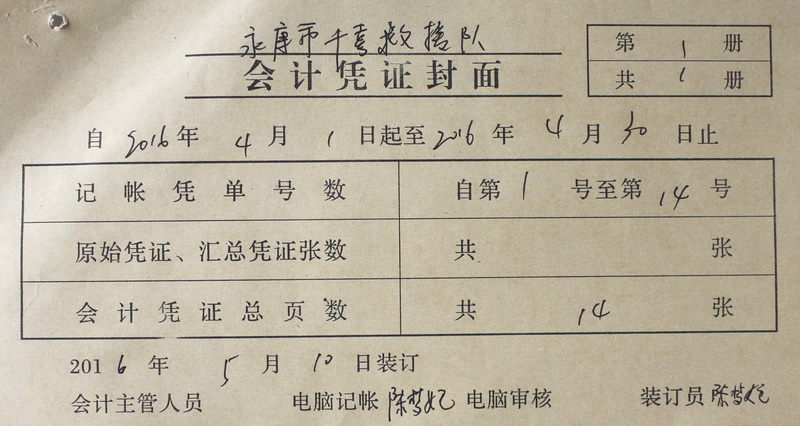 永康市千喜救援队
会计凭证封面
第 1 册
共 1 册
自 2016 年 4 月 1 日起至 2016 年 4 月 30 日止
记帐凭单号数 自第 1 号至第 14 号
原始凭证、汇总凭证张数 共 张
会计凭证总页数 共 14 张
2016 年 5 月 10 日装订
会计主管人员 电脑记帐 陈 电脑审核 装订员 陈